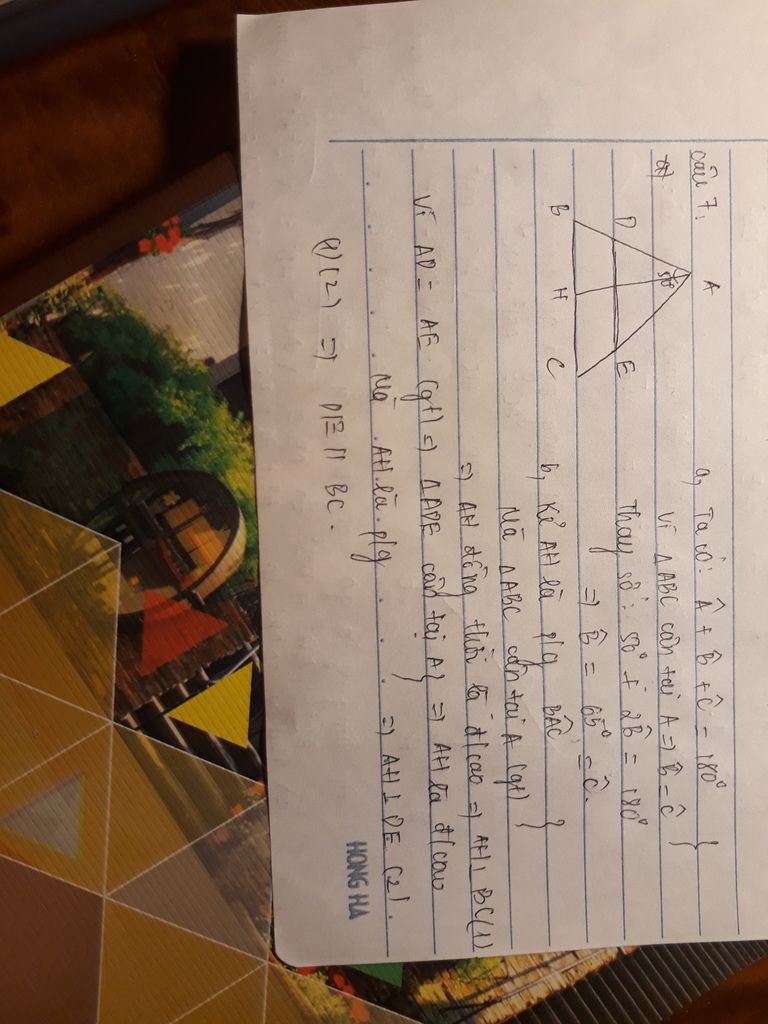 Câu 7.
A
50°
D
E
B
H
C
a, Ta có: Â + B̂ + Ĉ = 180° }
Vì ΔABC cân tại A => B̂ = Ĉ }
Thay số: 50° + 2B̂ = 180°
=> B̂ = 65° = Ĉ.
b, Kẻ AH là p/g BÂC }
Mà ΔABC cân tại A (gt) }
=> AH đồng thời là đ/cao => AH ⊥ BC (1)
Vì AD = AE (gt) => ΔADE cân tại A } => AH là đ/cao
Mà AH là p/g } => AH ⊥ DE (2).
(1) (2) => DE // BC.
HONG HA